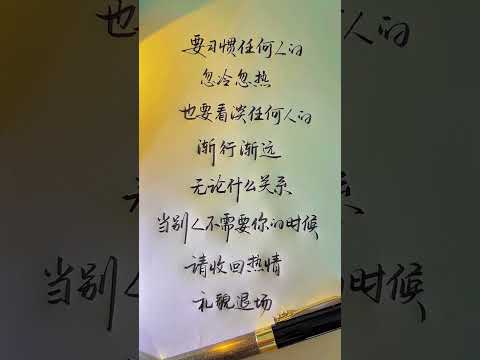 要习惯任何人的
忽冷忽热
也要看淡任何人的
渐行渐远
无论什么关系
当别人不需要你的时候
请收回热情
礼貌退场